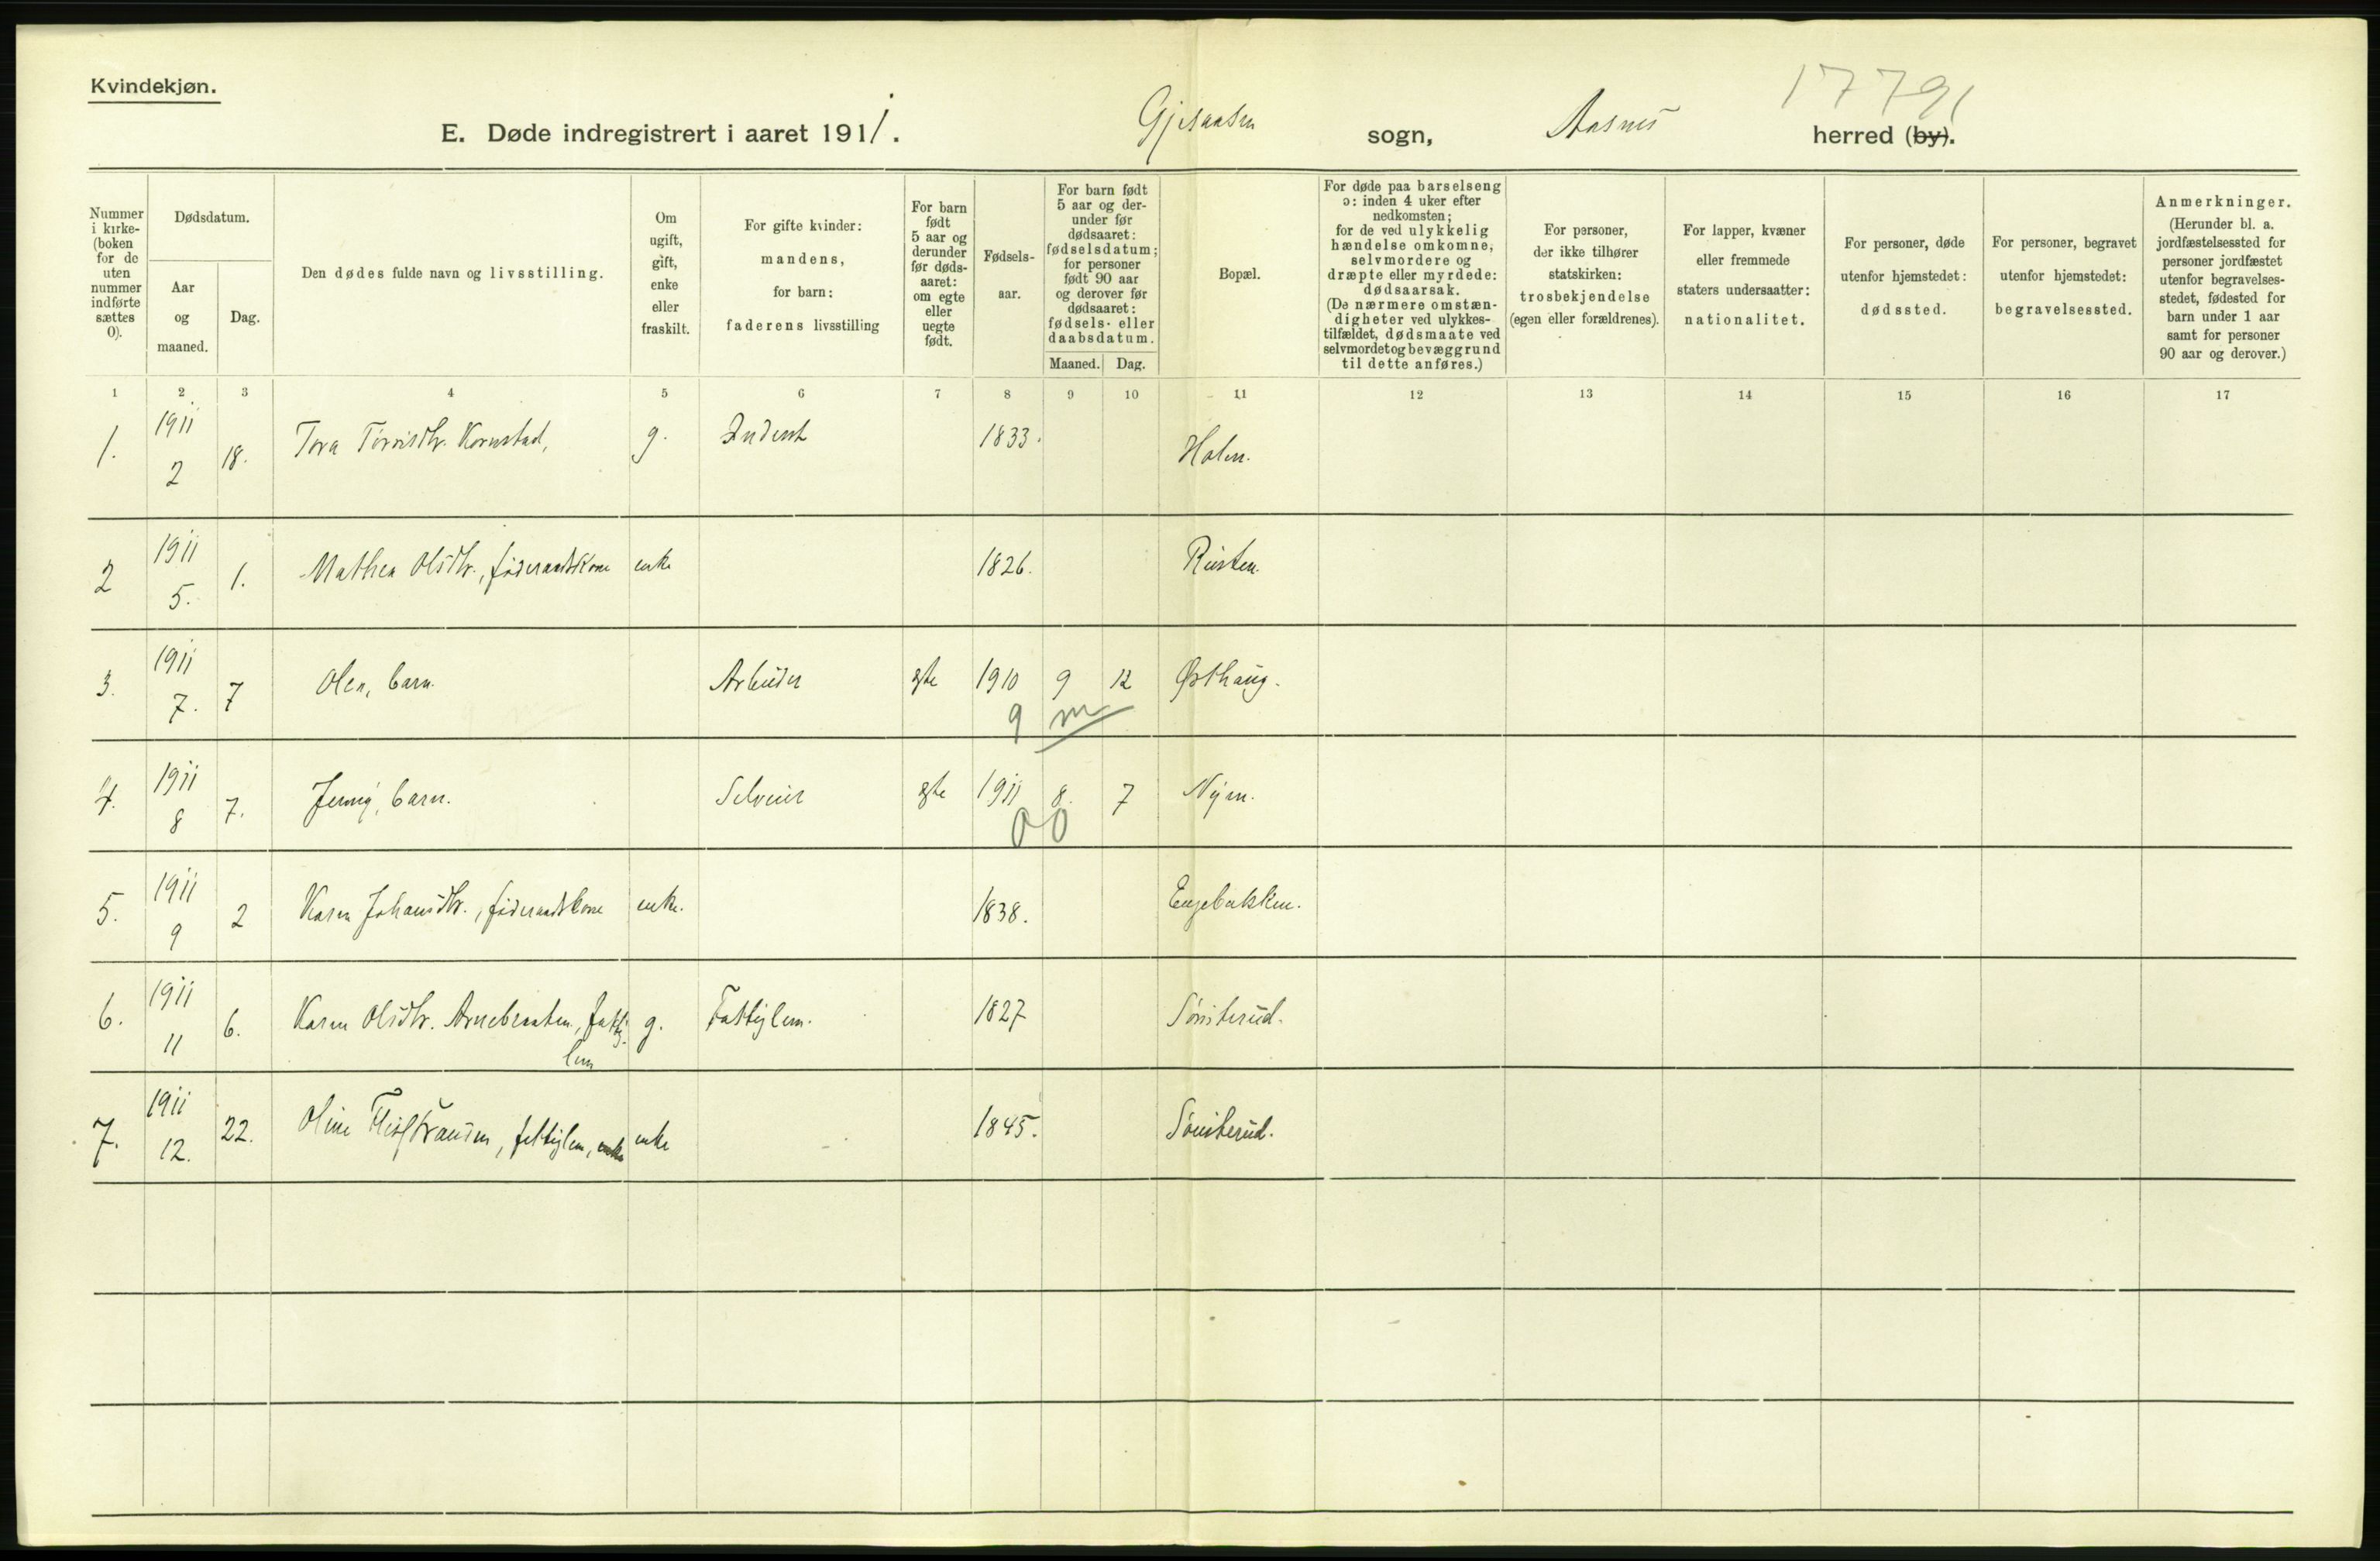 Kvindekjøn.
17791
E. Døde indregistrert i aaret 1911. Gjesaasen sogn, Aasnes herred (by).
Nummer i kirkeboken (for de uten nummer indførte sættes 0).
Dødsdatum.
Aar og maaned.
Dag.
Den dødes fulde navn og livsstilling.
Om ugift, gift, enke eller fraskilt.
For gifte kvinder: mandens, for barn: faderens livsstilling
For barn født 5 aar og derunder før dødsaaret: om egte eller uegte født.
Fødselsaar.
For barn født 5 aar og derunder før dødsaaret: fødselsdatum; for personer født 90 aar og derover før dødsaaret: fødsels- eller daabsdatum.
Maaned. Dag.
Bopæl.
For døde paa barselseng ɔ: inden 4 uker efter nedkomsten; for de ved ulykkelig hændelse omkomne, selvmordere og dræpte eller myrdede: dødsaarsak. (De nærmere omstændigheter ved ulykkestilfældet, dødsmaate ved selvmordet og bevæggrund til dette anføres.)
For personer, der ikke tilhører statskirken: trosbekjendelse (egen eller forældrenes).
For lapper, kvæner eller fremmede staters undersaatter: nationalitet.
For personer, døde utenfor hjemstedet: dødssted.
For personer, begravet utenfor hjemstedet: begravelsessted.
Anmerkninger. (Herunder bl. a. jordfæstelsessted for personer jordfæstet utenfor begravelsesstedet, fødested for barn under 1 aar samt for personer 90 aar og derover.)
1 2 3 4 5 6 7 8 9 10 11 12 13 14 15 16 17
1. 1911 2 18. Tora Kornstad, g. 1833. Holen.
2 1911 5. 1. Mathea Olsdtr., føderaadskone enke 1826. Rusten.
3. 1911 7. 7 Olea, barn. Arbeider egte 1910 9 12 Østhaug.
9 m
4. 1911 8 7. Jenny, barn. Selveier egte 1911 8. 7 Nyen.
00
5. 1911 9 2 Karen Johansdtr., føderaadskone enke. 1838. Engebakken.
6. 1911 11 6. Karen Olsdtr. Arnebraaten, fattig-
lem g. Fattiglem. 1827 Sønsterud.
7. 1911 12. 22. Oline fattiglem, enke enke 1845. Sønsterud.